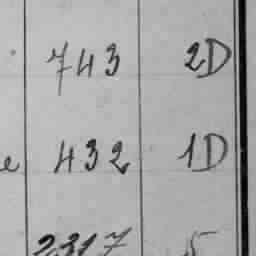 743 2D
e 432 1D
2317 5